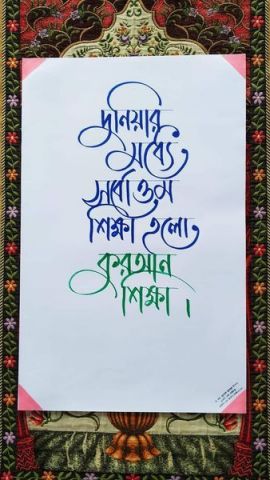 দুনিয়ার
মধ্যে
সর্বোত্তম
শিক্ষা হলো
কুরআন
শিক্ষা।